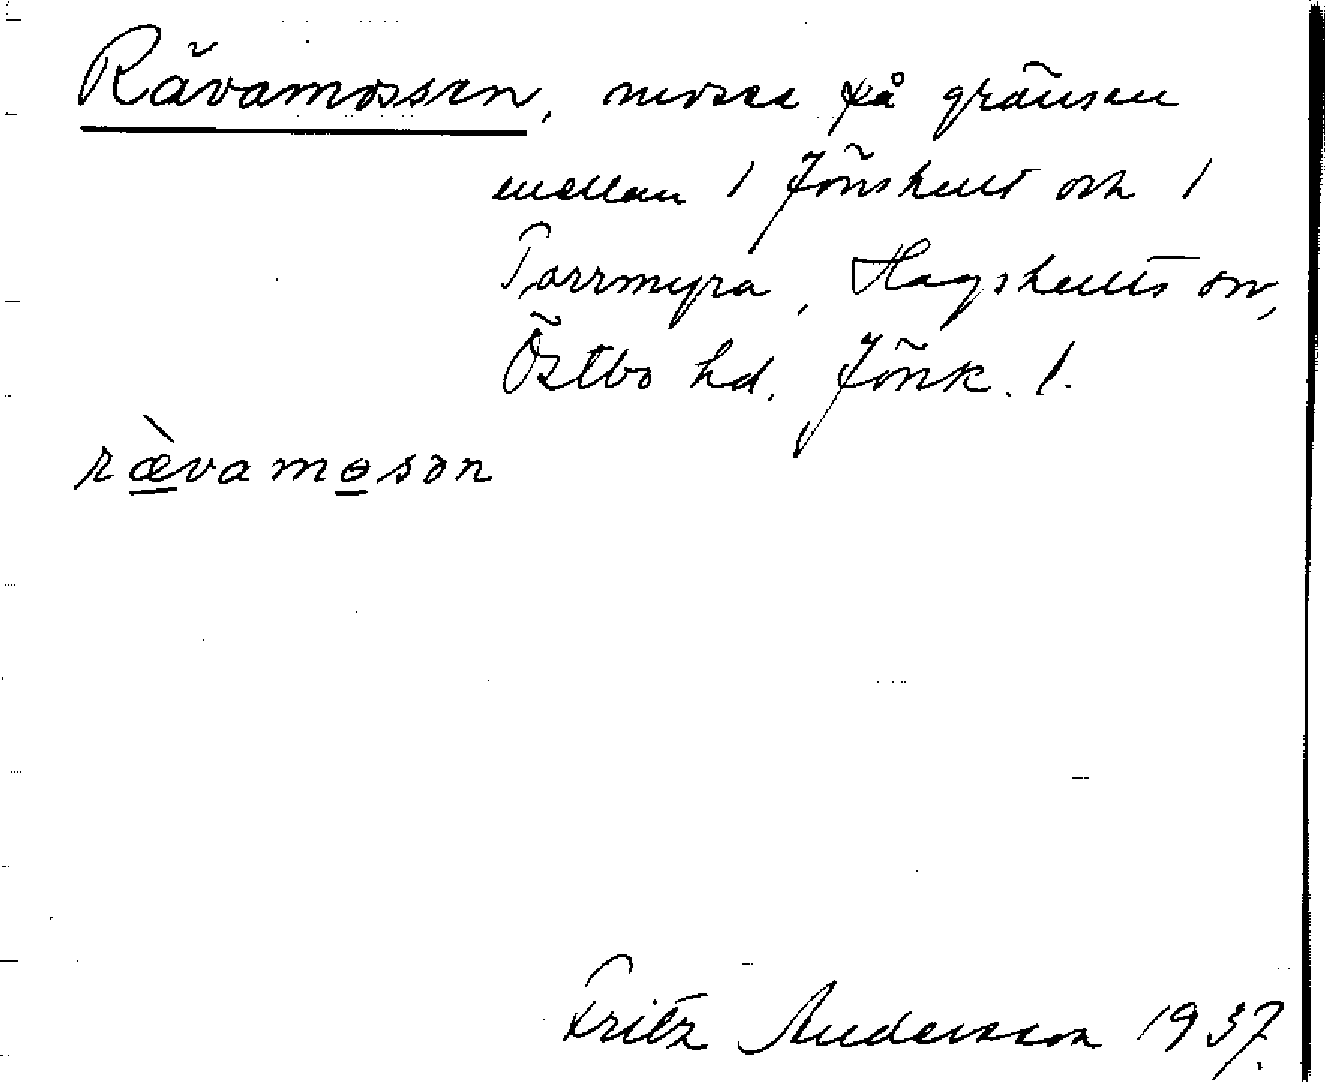 Rävamossen, mosse på gränsen
mellan 1 Jönshult och 1
Torrmyra, Hagshults sn,
Östbo hd. Jönk. l.
rævamosən
Fritz Andersson 1937.